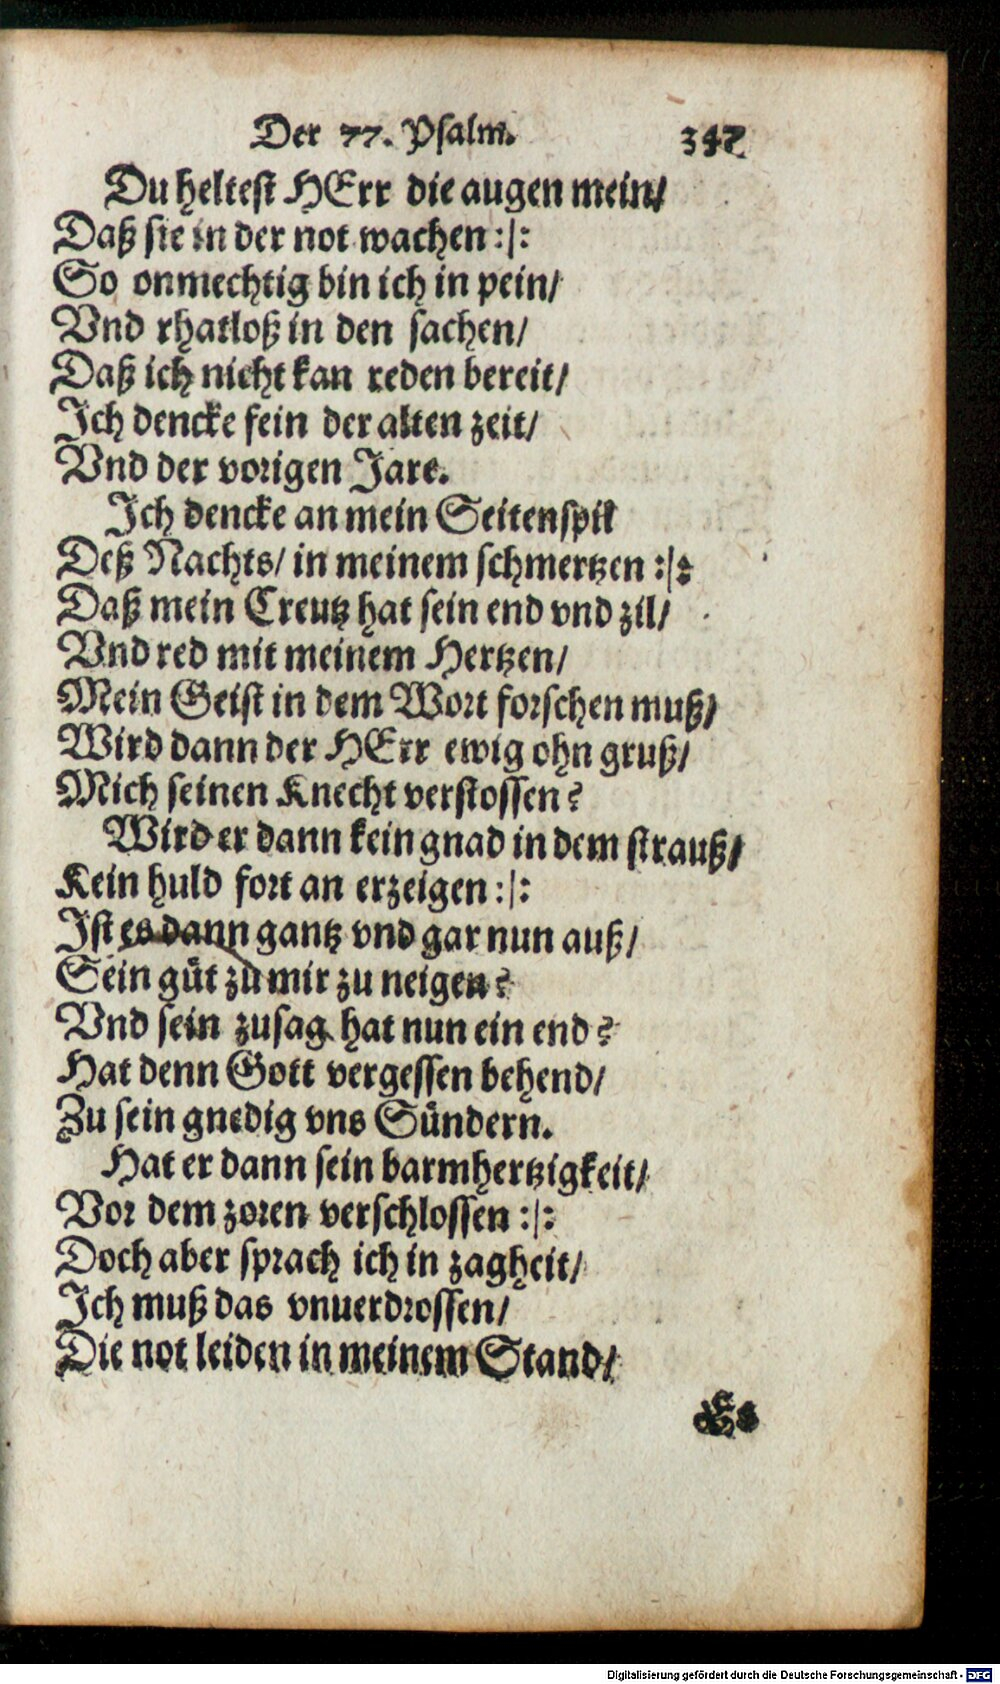 Der 77. Psalm. 342
Du heltest HErr die augen mein/
Daß sie in der not wachen :/:
So onmechtig bin ich in pein/
Vnd rhatloß in den sachen/
Daß ich nicht kan reden bereit/
Ich dencke fein der alten zeit/
Vnd der vorigen Jare.
Ich dencke an mein Seitenspil
Deß Nachts/ in meinem schmertzen :/:
Daß mein Creutz hat sein end vnd zil/
Vnd red mit meinem Hertzen/
Mein Geist in dem Wort forschen muß/
Wird dann der HErr ewig ohn gruß/
Mich seinen Knecht verstossen?
Wird er dann kein gnad in dem strauß/
Kein huld fort an erzeigen :/:
Ist es dann gantz vnd gar nun auß/
Sein güt zu mir zu neigen?
Vnd sein zusag hat nun ein end?
Hat denn Gott vergessen behend/
Zu sein gnedig vns Sündern.
Hat er dann sein barmhertzigkeit/
Vor dem zoren verschlossen :/:
Doch aber sprach ich in zagheit/
Ich muß das vnuerdrossen/
Die not leiden in meinem Stand/
Es
Digitalisierung gefördert durch die Deutsche Forschungsgemeinschaft - DFG